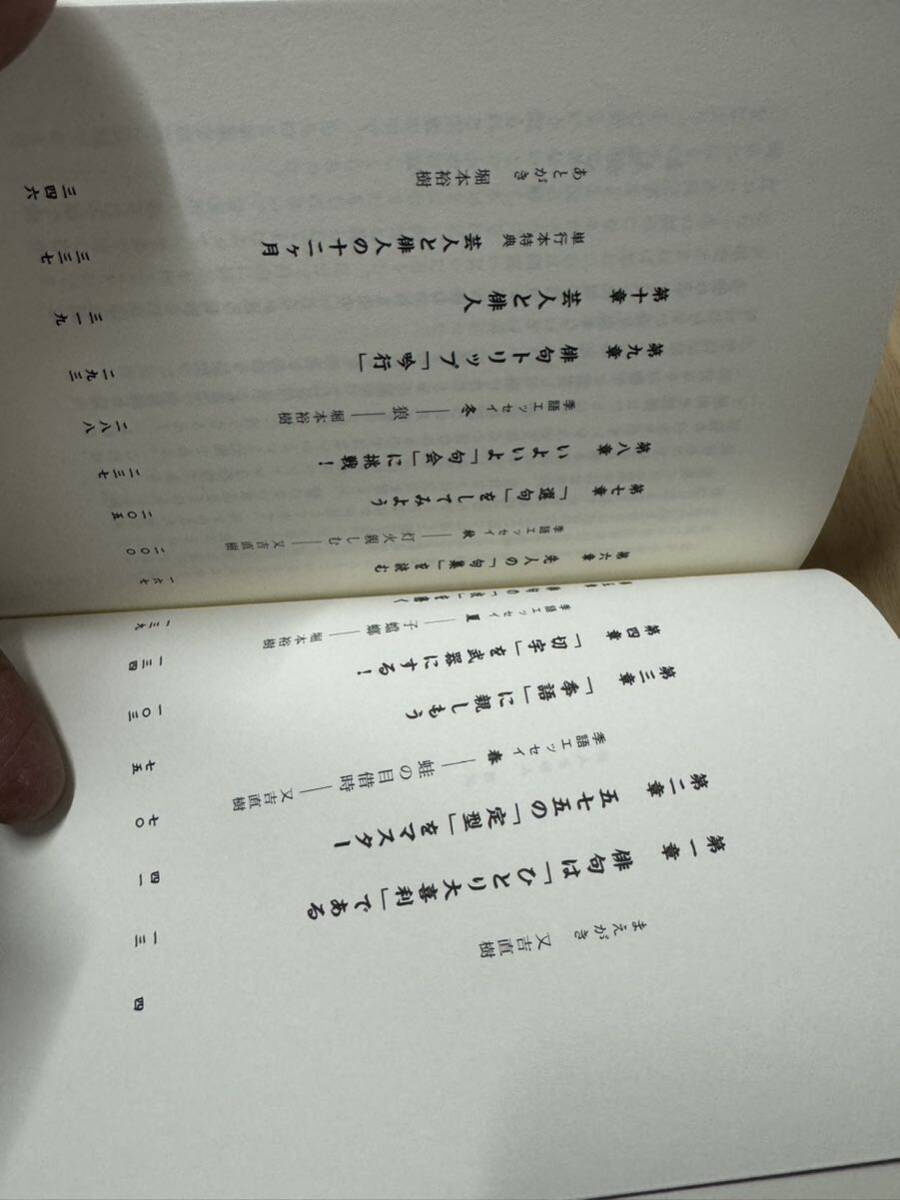 まえがき 又吉直樹 四
第一章 俳句は「ひとり大喜利」である 一三
第二章 五七五の「定型」をマスター 四一
季語エッセイ 春 ── 蛙の目借時 ── 又吉直樹 七〇
第三章 「季語」に親しもう 七五
第四章 「切字」を武器にする! 一〇三
季語エッセイ 夏 ── 子蟷螂 ── 堀本裕樹 一三四
一三九
第六章 先人の「句集」を読む 一六七
季語エッセイ 秋 ── 灯火親しむ ── 又吉直樹 二〇〇
第七章 「選句」をしてみよう 二〇五
第八章 いよいよ「句会」に挑戦! 二三七
季語エッセイ 冬 ── 狼 ── 堀本裕樹 二八八
第九章 俳句トリップ「吟行」 二九三
第十章 芸人と俳人 三一九
単行本特典 芸人と俳人の十二ヶ月 三三七
あとがき 堀本裕樹 三四六